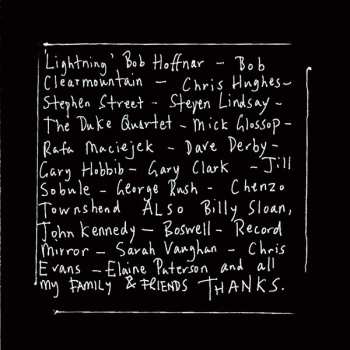 'Lightning' Bob Hoffnar – Bob
Clearmountain – Chris Hughes –
Stephen Street – Steven Lindsay –
The Duke Quartet – Mick Glossop –
Rafa Maciejek – Dave Derby –
Gary Hobbib – Gary Clark – Jill
Sobule – George Rush – Chenzo
Townshend ALSO Billy Sloan,
John Kennedy – Boswell – Record
Mirror – Sarah Vaughan – Chris
Evans – Elaine Paterson and all
my FAMILY & FRIENDS THANKS.